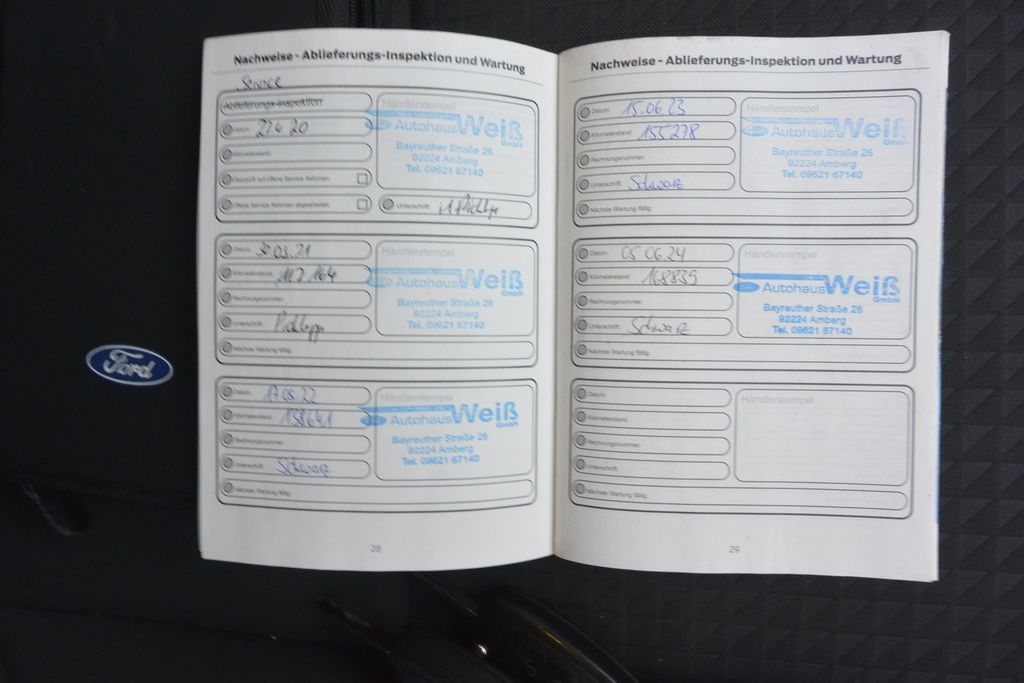 Ford
Nachweise - Ablieferungs-Inspektion und Wartung
Service
Ablieferungs-Inspektion
Datum: 27.4.20
Kilometerstand:
Überprüft auf offene Service-Aktionen.
Offene Service Aktionen abgearbeitet.
Händlerstempel
Autohaus Weiß
GmbH
Bayreuther Straße 26
92224 Amberg
Tel. 09621 67140
Unterschrift:
Datum: 30.03.21
Kilometerstand: 117.164
Rechnungsnummer:
Unterschrift:
Nächste Wartung fällig:
Händlerstempel
Autohaus Weiß
GmbH
Bayreuther Straße 26
92224 Amberg
Tel. 09621 67140
Datum: 17.08.22
Kilometerstand: 151641
Rechnungsnummer:
Unterschrift: Schwarz
Nächste Wartung fällig:
Händlerstempel
Autohaus Weiß
GmbH
Bayreuther Straße 26
92224 Amberg
Tel. 09621 67140
28
Nachweise - Ablieferungs-Inspektion und Wartung
Datum: 15.06.23
Kilometerstand: 155278
Rechnungsnummer:
Unterschrift: Schwarz
Nächste Wartung fällig:
Händlerstempel
Autohaus Weiß
Bayreuther Straße 26
92224 Amberg
Tel. 09621 67140
Datum: 05.06.24
Kilometerstand: 168839
Rechnungsnummer:
Unterschrift: Schwarz
Nächste Wartung fällig:
Händlerstempel
Autohaus Weiß
GmbH
Bayreuther Straße 26
92224 Amberg
Tel. 09621 67140
Datum:
Kilometerstand:
Rechnungsnummer:
Unterschrift:
Nächste Wartung fällig:
Händlerstempel
29